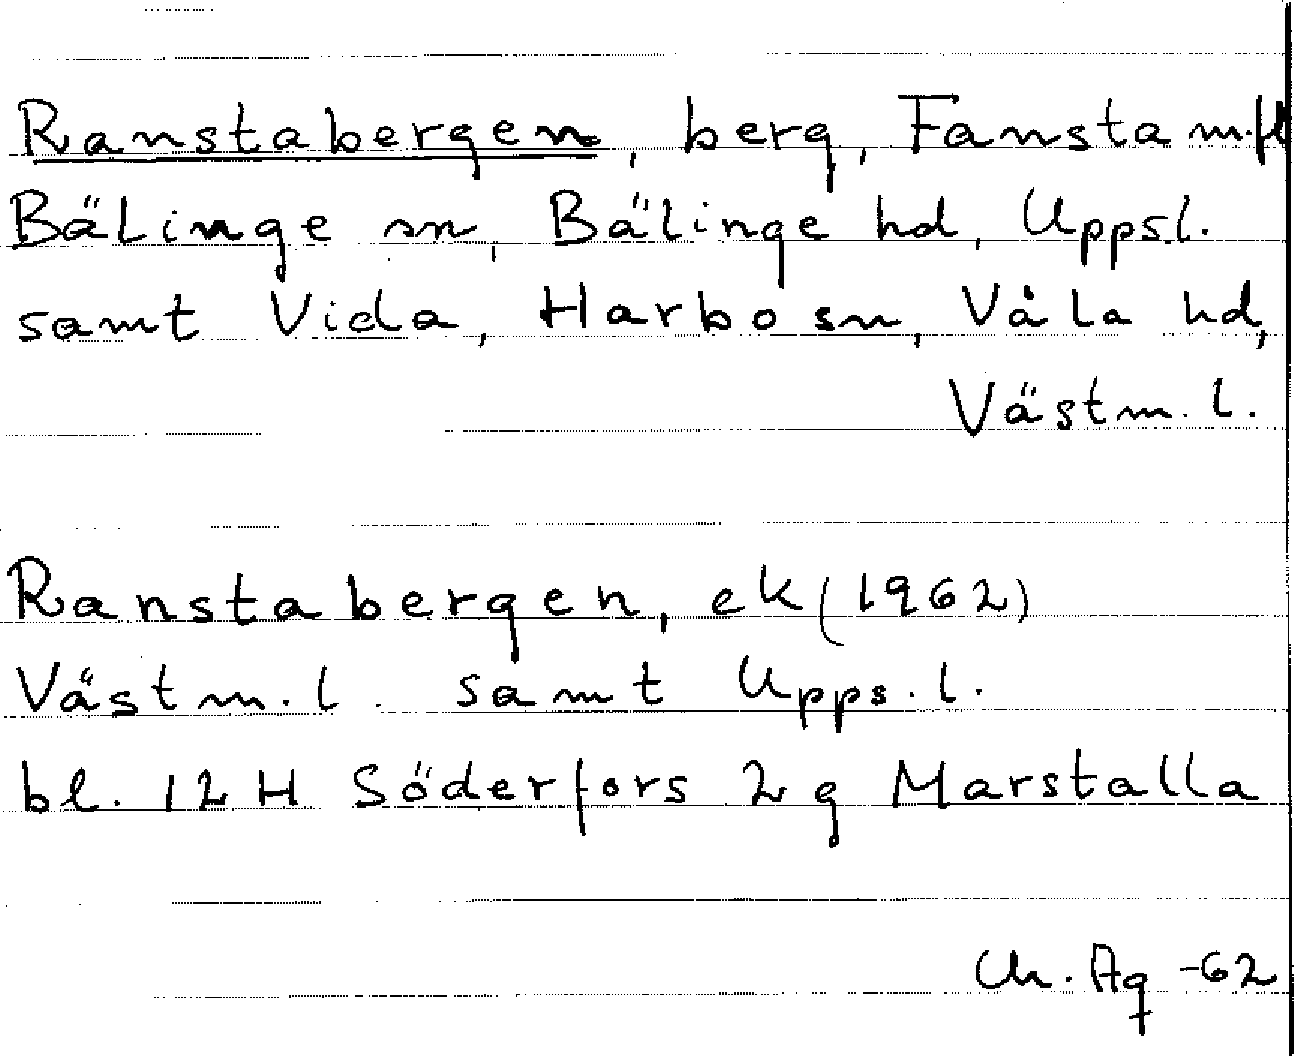 Ranstabergen, berg, Fansta m.fl
Bälinge sn, Bälinge hd, Uppsl.
samt Vida, Harbo sn, Våla hd,
Västm. l.
Ranstabergen, ek (1962)
Västm. l. samt Upps. l.
bl. 12 H Söderfors 2 g Marstalla
Ch. Ag -62